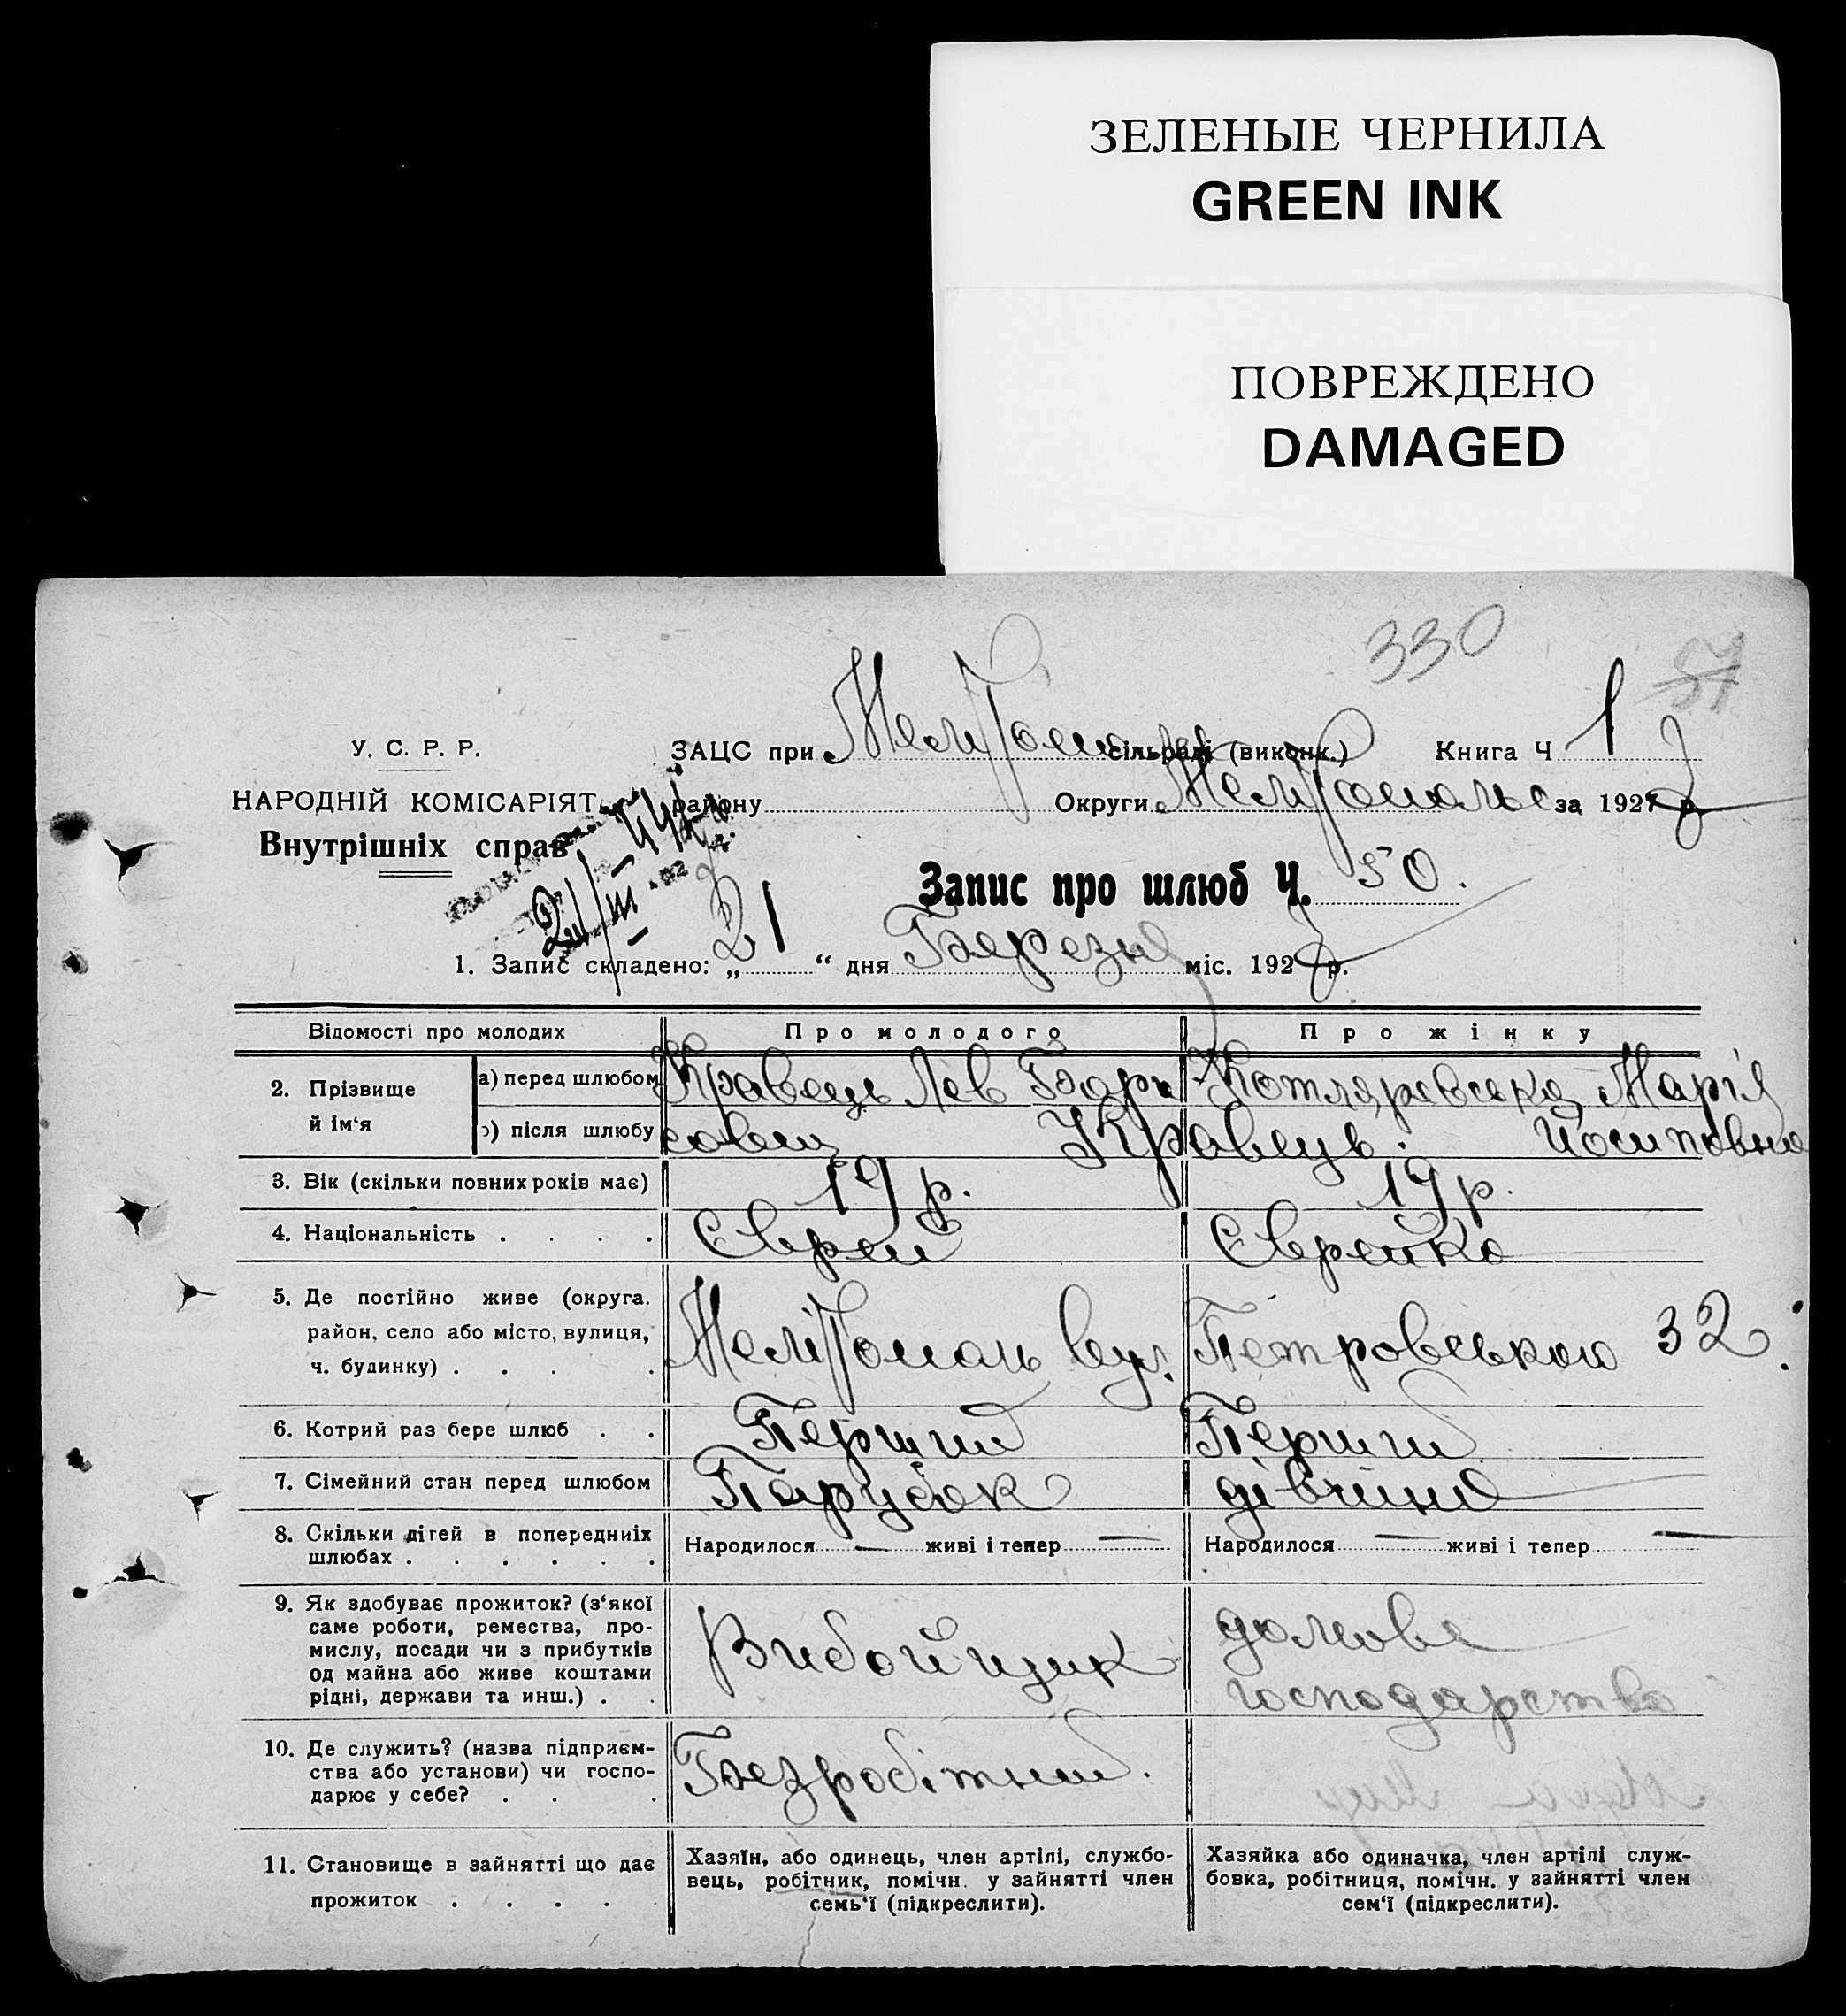 ЗЕЛЕНЫЕ ЧЕРНИЛА
GREEN INK
ПОВРЕЖДЕНО
DAMAGED
330
57
У. С. Р. Р.
ЗАЦС при Мелітопольск сільраді (виконк.) Книга Ч 1
НАРОДНІЙ КОМІСАРІЯТ
району Округи Мелітопольс за 1927 р.
Внутрішніх справ
21/III
Запис про шлюб Ч. 50.
1. Запис складено: „21“ дня Березня міс. 1927 р.
Відомості про молодих Про молодого Про жінку
2. Прізвище й ім‘я
а) перед шлюбом Кравець Лев Бори Котляревська Марія
б) після шлюбу сович Кравець. Йосиповна
3. Вік (скільки повних років має) 19 р. 19 р.
4. Національність . . . . Єврей Єврейка
5. Де постійно живе (округа.
район, село або місто, вулиця,
ч. будинку) . . . . Мелітополь вул. Петровською 32.
6. Котрий раз бере шлюб . . Перший Перший
7. Сімейний стан перед шлюбом Парубок дівчина
8. Скільки дітей в попередніх
шлюбах . . . . . . Народилося — живі і тепер — Народилося — живі і тепер —
9. Як здобуває прожиток? (з‘якої
саме роботи, ремества, про-
мислу, посади чи з прибутків
од майна або живе коштами
рідні, держави та инш.) . . Вибойщик домове господарство
10. Де служить? (назва підприєм-
ства або установи) чи госпо-
дарює у себе? . . . Безробітний.
11. Становище в зайнятті що дає
прожиток . . . .
Хазяїн, або одинець, член артілі, службо-
вець, робітник, помічн. у зайнятті член
семь‘ї (підкреслити).
Хазяйка або одиначка, член артілі служ-
бовка, робітниця, помічн. у зайнятті член
сем‘ї (підкреслити).